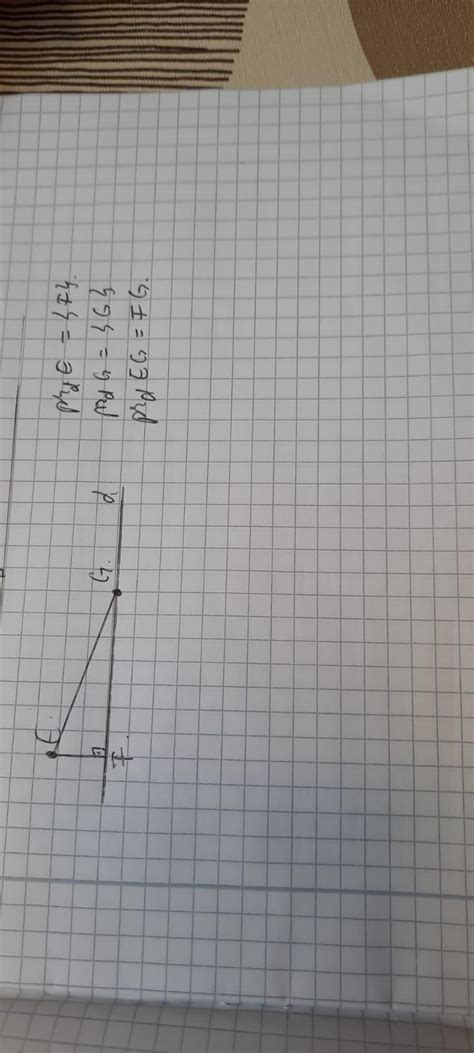 pr_d E = {F}.
pr_d G = {G}
pr_d EG = FG.
E.
G.
d
F.